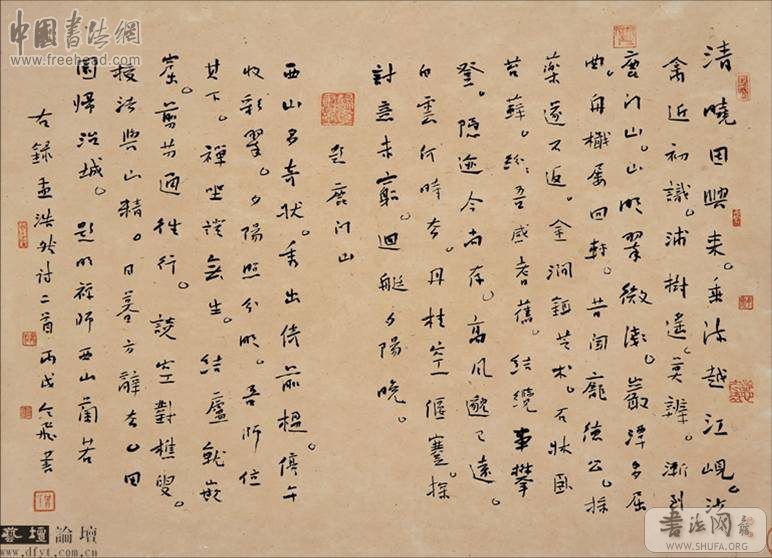 清曉因興来。垂流越江峴。沙
禽近初識。浦樹遙莫辨。漸到
鹿门山。山明翠微淺。巖潭多屈
曲。舟檝屡回轉。昔闻龐德公。採
藥遂不返。金澗餌芝朮。石牀卧
苔蘚。紛吾感耆舊。結纜事攀
登。隱迹今尚存。高风邈已遠。
白雲何時去。丹桂空偃蹇。探
討意未窮。迴艇夕陽晚。
題鹿门山
西山多奇狀。秀出倚前楹。停午
收彩翠。夕陽照分明。吾師住
其下。禪坐證無生。結廬就嵌
窟。剪苕通往行。談空對樵叟。
授法與山精。日暮方辭去。田
園歸冶城。 題明禪師西山蘭若
右録孟浩然詩二首 丙戌 飛書
中國書法網
www.freehead.com
藝壇論壇
www.dfyt.com.cn
书法网
WWW.SHUFA.ORG